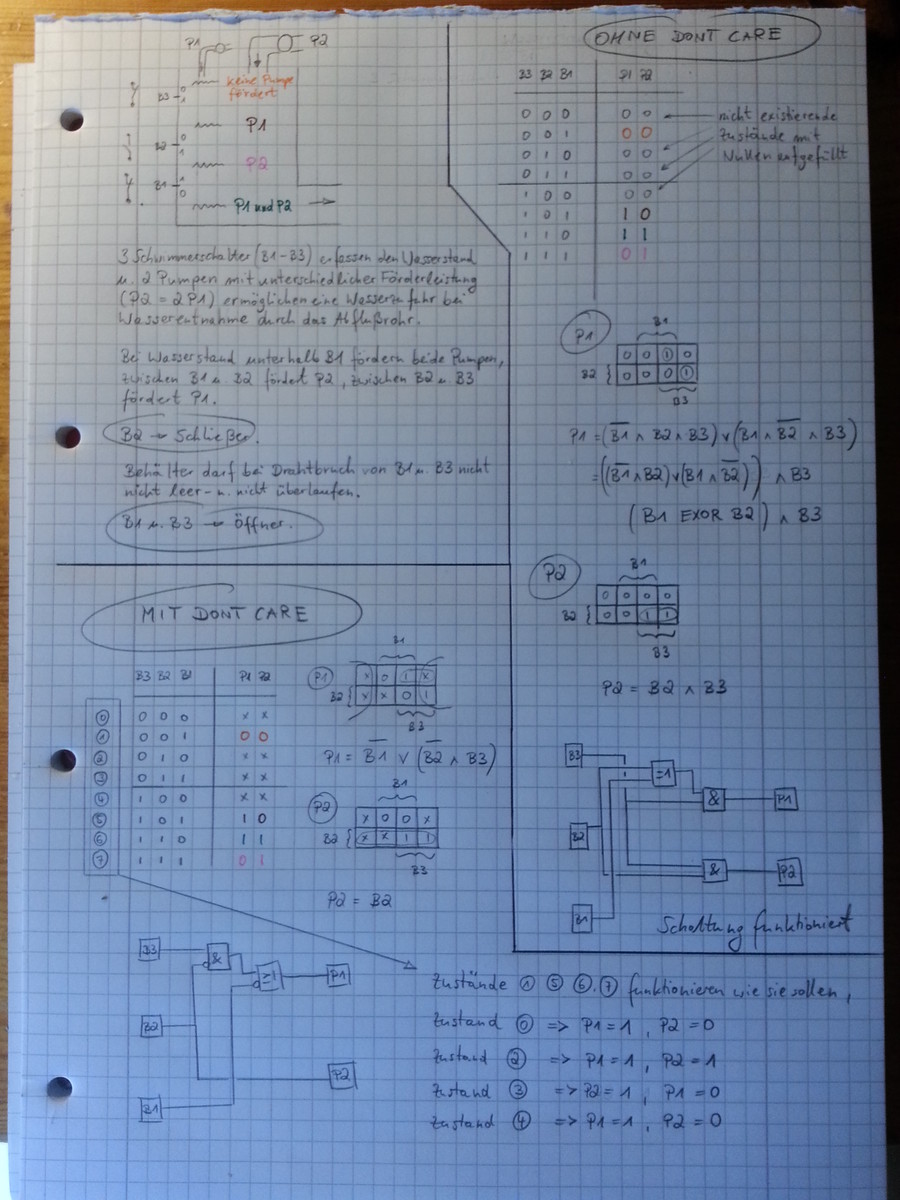 P1
P2
keine Pumpe
fördert
B3
0
1
P1
B2
0
1
P2
B1
1
0
P1 und P2
3 Schwimmerschalter (B1-B3) erfassen den Wasserstand
u. 2 Pumpen mit unterschiedlicher Förderleistung
(P2 = 2P1) ermöglichen eine Wasserzufuhr bei
Wasserentnahme durch das Abflußrohr.
Bei Wasserstand unterhalb B1 fördern beide Pumpen,
zwischen B1 u. B2 fördert P2, zwischen B2 u. B3
fördert P1.
B2 → Schließer.
Behälter darf bei Drahtbruch von B1 u. B3 nicht
nicht leer- u. nicht überlaufen.
B1 u. B3 → Öffner.
OHNE DONT CARE
B3 B2 B1 P1 P2
0 0 0 0 0 nicht existierende
0 0 1 0 0 Zustände mit
0 1 0 0 0 Nullen aufgefüllt
0 1 1 0 0
1 0 0 0 0
1 0 1 1 0
1 1 0 1 1
1 1 1 0 1
P1
B1
0 0 1 0
B2 { 0 0 0 1
B3
P1 = (B̅1̅ ∧ B2 ∧ B3) ∨ (B1 ∧ B̅2̅ ∧ B3)
= ((B̅1̅ ∧ B2) ∨ (B1 ∧ B̅2̅)) ∧ B3
(B1 EXOR B2) ∧ B3
P2
B1
0 0 0 0
B2 { 0 0 1 1
B3
P2 = B2 ∧ B3
B3
=1
& P1
B2
& P2
B1
Schaltung funktioniert
MIT DONT CARE
B3 B2 B1 P1 P2
0 0 0 0 x x
1 0 0 1 0 0
2 0 1 0 x x
3 0 1 1 x x
4 1 0 0 x x
5 1 0 1 1 0
6 1 1 0 1 1
7 1 1 1 0 1
B1
P1 x 0 1 x
B2 { x x 0 1
B3
P1 = B̅1̅ ∨ (B̅2̅ ∧ B3)
B1
P2 x 0 0 x
B2 { x x 1 1
B3
P2 = B2
B3
&
≥1 P1
B2
P2
B1
Zustände ① ⑤ ⑥, ⑦ funktionieren wie sie sollen,
Zustand ⓪ => P1 = 1, P2 = 0
Zustand ② => P1 = 1, P2 = 1
Zustand ③ => P2 = 1, P1 = 0
Zustand ④ => P1 = 1, P2 = 0